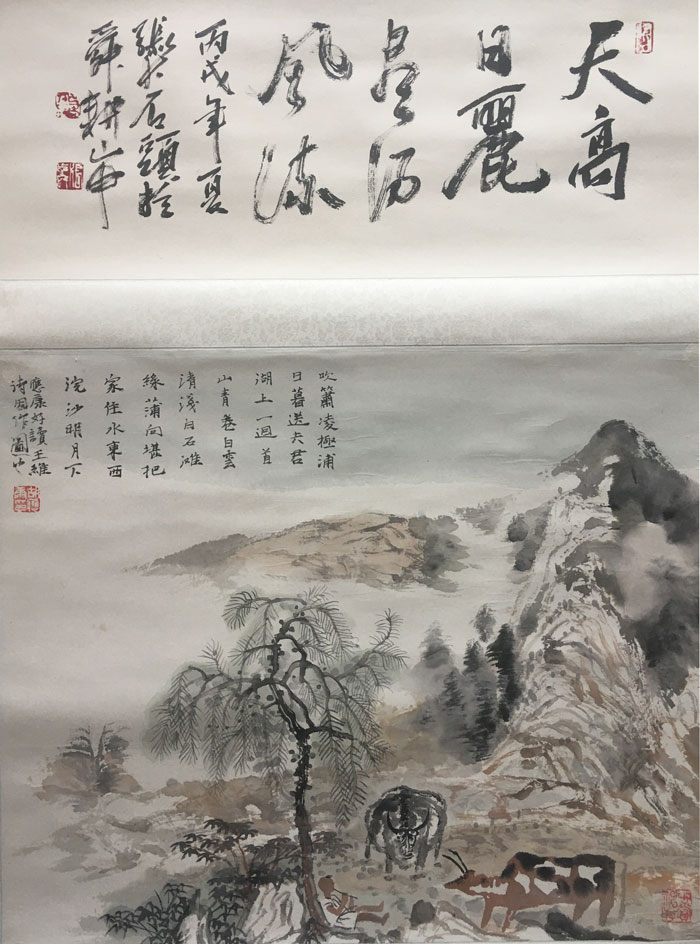 天高
日麗
盡得
風流
丙戌年夏
張大石頭於
舜耕山中
吹簫凌極浦
日暮送夫君
湖上一迴首
山青卷白雲
清淺白石灘
綠蒲向堪把
家住水東西
浣沙明月下
應康好讀王維
詩因作圖